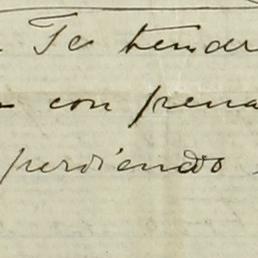 Te tendr
con pena
perdiendo